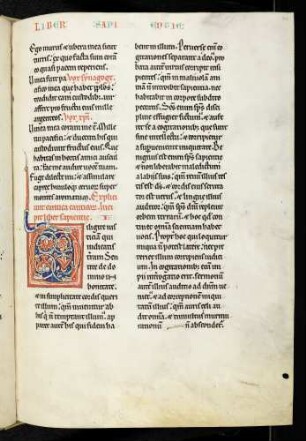 LIBER SAPI ENTIE
Ego murus et ubera mea sicut
turris: ex quo facta sum coram
eo quasi pacem reperiens.
Vinea fuit
que habet populos:
Vox xpi.
Vinea mea coram me est. Mille
pacifici: et ducenti his qui
custodiunt fructus eius. Que
habitas in hortis amici auscul
tant: fac me audire vocem tuam.
Fuge dilecte mi: et assimilare
capree hinnuloque cervorum super
montes aromatum. Explici
unt cantica canticor. Inci
pit liber sapientie.
iligite ius
ticiam qui
iudicatis
terram. Sen
tite de do
mino in
bonitate:
et in simplicitate cordis queri
te illum: quoniam invenitur ab
his qui non temptant illum: ap
paret autem his qui fidem ha
bent in illum. Perverse enim co
gitationes separant a deo: pro
bata autem virtus corripit insi
pientes: quoniam in malivolam ani
mam non introibit sapientia: nec
habitabit in corpore subdito
peccatis. Spiritus enim sanctus disci
pline effugiet fictum: et aufe
ret se a cogitationibus: que
sunt sine intellectu: et corripietur
a superveniente iniquitate. Be
nignus est enim spiritus sapientie:
et non liberabit maledicum a
labiis suis: quoniam renum illius tes
tis est deus: et cordis eius scruta
tor est verus: et lingue illius
auditor: quoniam spiritus domini replevit
orbem terrarum: et hoc quod con
tinet omnia scientiam habet
vocis. Propter hoc qui loquitur
iniqua non potest latere: nec preter
iet illum corripiens iudicium.
In cogitationibus enim im
pii interrogatio erit: sermonum
autem illius auditio ad deum veni
et: et ad correptionem iniqui
tatum illius: quoniam auris zeli au
dit omnia: et tumultus murmu
rationum non abscondetur.